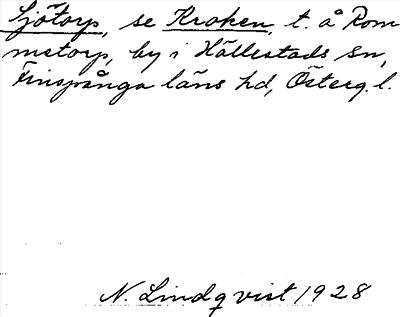 Sjötorp, se Kroken, t. å Rom
metorp, by i Hällestads sn,
Finspånga läns hd, Österg. l.
N. Lindqvist 1928